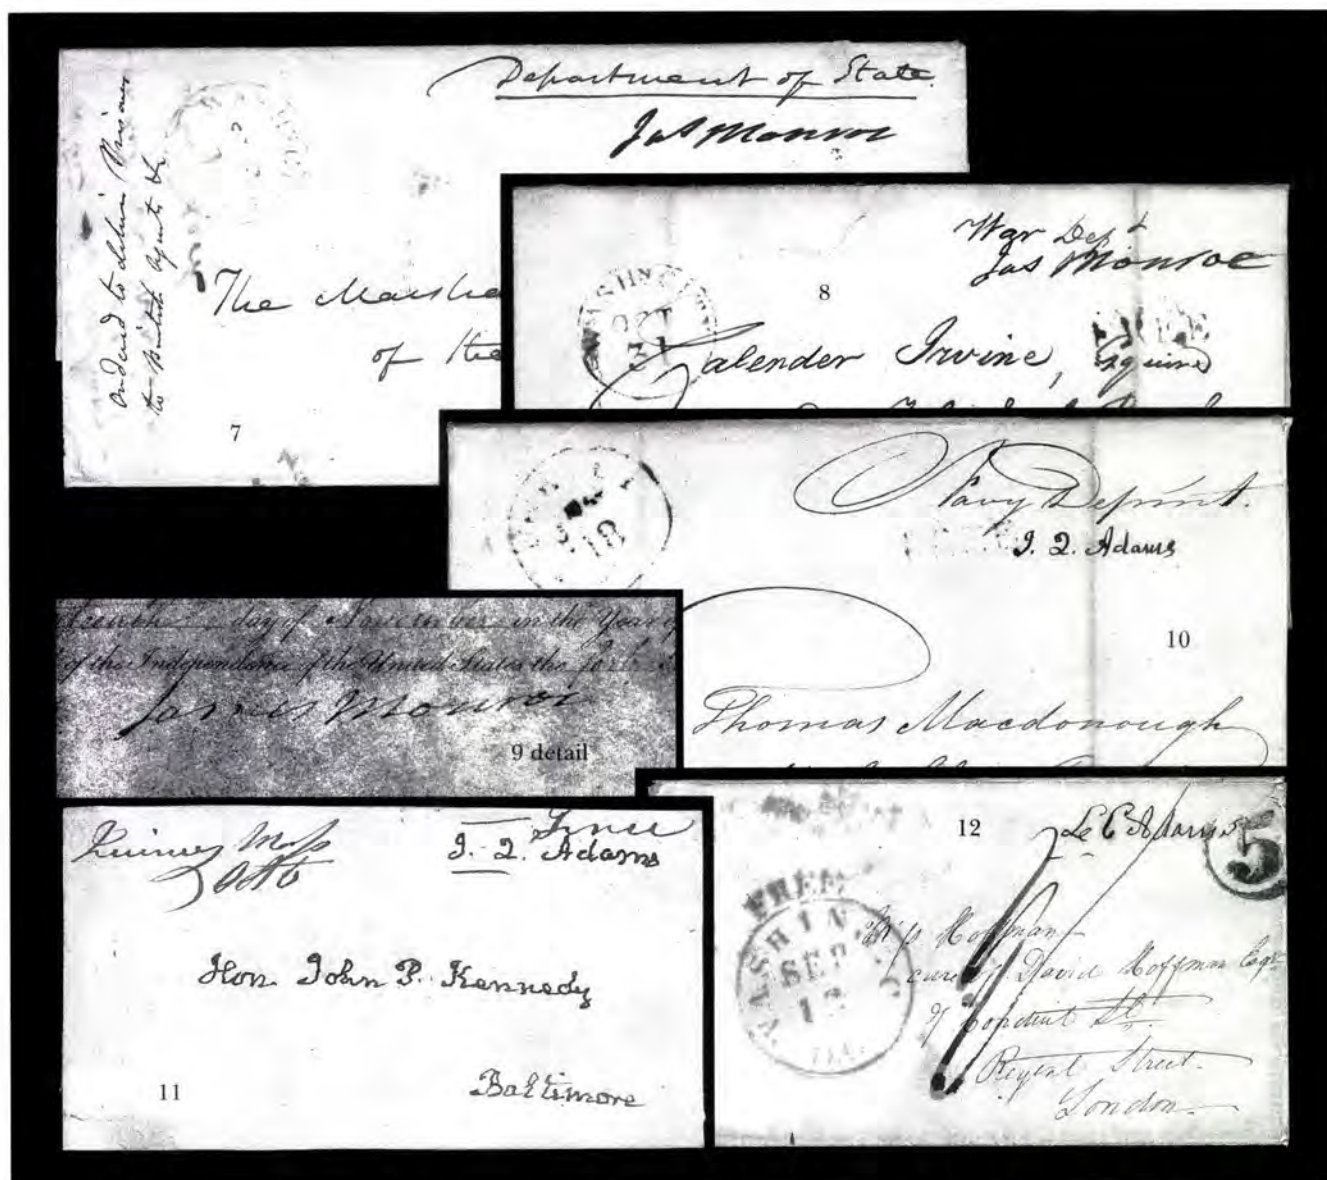 Department of State.
Jas Monroe
to British Agent &c
The Marsha
of the
7
War Dept
Jas Monroe
8
WASHN
OCT
31
FREE
Calender Irvine, Esquire
Navy Depmt.
J. Q. Adams
18
10
Thomas Macdonough
day of November in the Year of
of the Independence of the United States the
James Monroe
9 detail
Quincy Mss
Free
J. Q. Adams
Hon. John P. Kennedy
11
Baltimore
12
L. C. Adams
5
FREE
WASHIN
SEP
Hoffman
care of David Hoffman Esqr
Conduit St.
Regent Street.
London